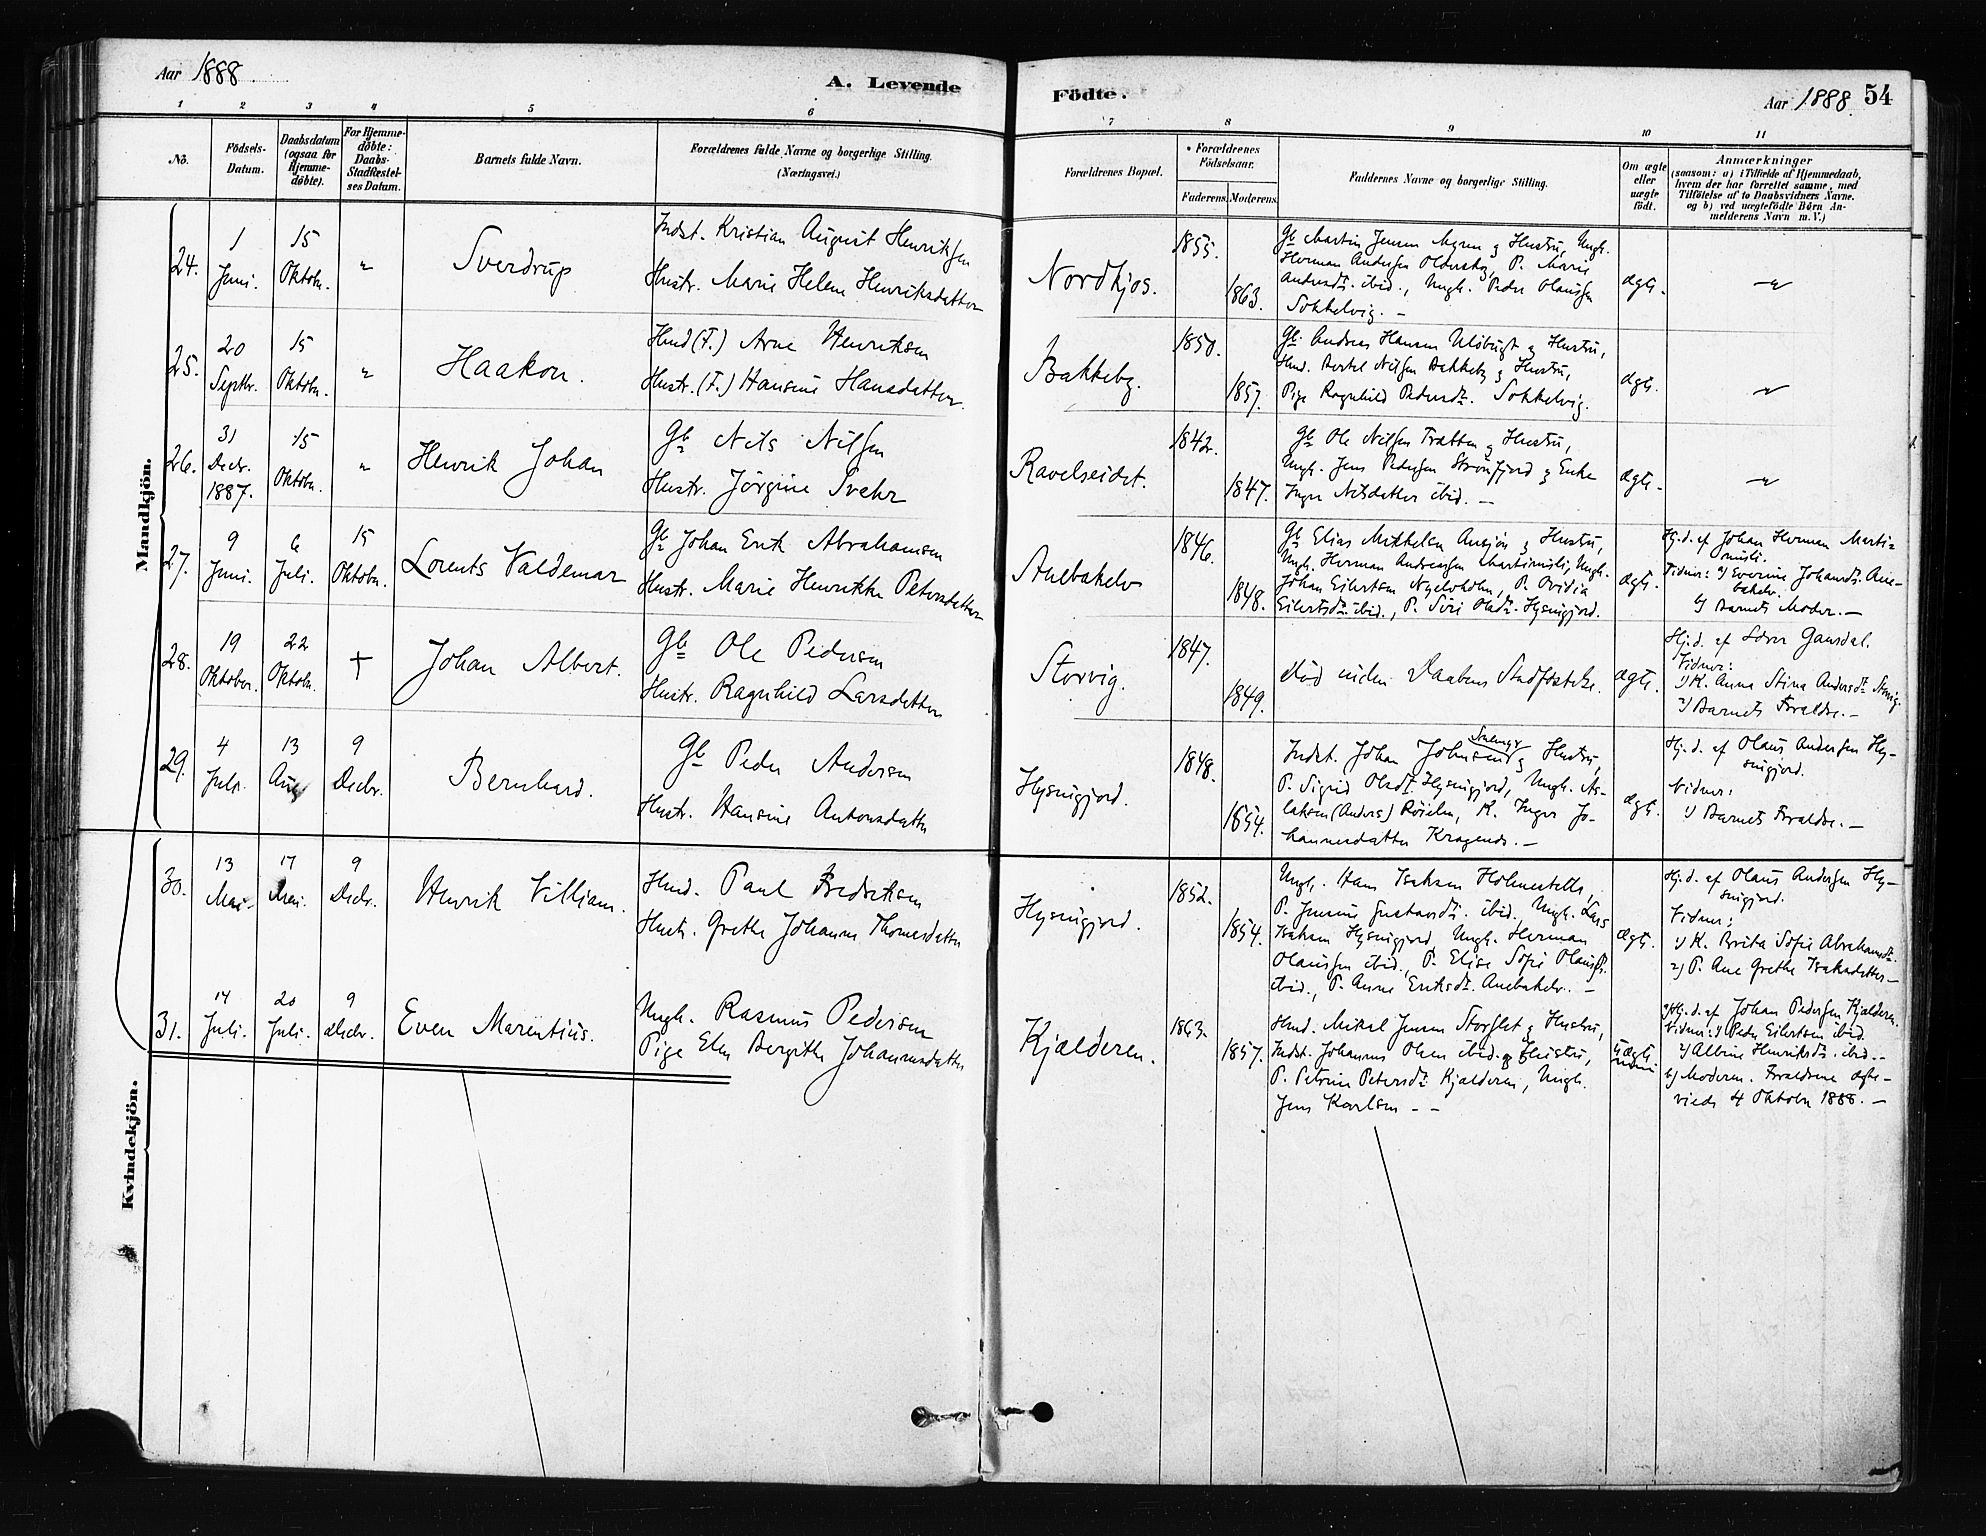 Aar 1888.
A. Levende
Födte.
Aar 1888. 54
1 2 3 4 5 6 7 8 9 10 11
No.
Födsels-
Datum.
Daabsdatum
(ogsaa for
Hjemme-
döbte).
For Hjemme-
döbte:
Daabs-
Stadfæstel-
ses Datum.
Barnets fulde Navn.
Forældrenes fulde Navne og borgerlige Stilling.
(Næringsvei.)
Forældrenes Bopæl.
Forældrenes
Födselsaar.
Faderens. Moderens.
Faddernes Navne og borgerlige Stilling.
Om ægte
eller
uægte
födt.
Anmærkninger
(saasom: a) i Tilfælde af Hjemmedaab,
hvem der har forrettet samme, med
Tilföielse af to Daabsvidners Navne.
og b) ved uægtefödte Börn An-
melderens Navn m. V.)
Mandkjön.
24.
1
Juni.
15
Oktobr.
"
Sverdrup
Indst. Kristian August Henriksen
Hustr. Marie Helene Henriksdatter
Nordkjos.
1855.
1863.
Gb Martin Jensen Myren og Hustru, Ungk.
Herman Andersen Oldervig, P. Marie
Andersdt. ibid., Ungk. Peder Olaussen
Sokkelvig. –
ægte.
"
25.
20
Septbr.
15
Oktobr.
"
Haakon.
Hmd (F.) Arne Henriksen
Hustr. (F.) Hansine Hansdatter.
Bakkeby.
1850.
1857.
Gb. Andreas Hansen Ulsbugt og Hustru,
Hmd. Bertel Nilsen Bakkeby og Hustru,
Pige Ragnhild Pedersdt. Sokkelvig.
ægte.
"
26.
31
Decbr.
1887.
15
Oktobr.
"
Henrik Johan
Gb Nils Nilsen
Hustr. Jörgine Svehr
Ravelseidet.
1842.
1847.
Gb Ole Nilsen Trætten og Hustru,
Ungk. Jens Pedersen Strömfjord og Enke
Inger Nilsdatter ibid. –
ægte.
"
27.
9
Juni.
6
Juli.
15
Oktobr.
Lorents Valdemar
Gb Johan Erik Abrahamsen
Hustr. Marie Henrikke Petersdatter
Anebakelv
1846.
1848.
Gb Elias Mikkelsen og Hustru,
Ungk. Herman Andreassen Ungk.
Johan Eilertsen P. Ovidia
Eilertsdt. ibid., P. Siri Olsdt. Hysingjord.
ægte.
Hj.d. af Johan Herman Marti-
nusli.
Vidner: 1) Everine Johansdt. Ane-
bakelv.
2) Barnets Moder. –
28.
19
Oktober.
22
Oktobr.
†
Johan Albert.
Gb Ole Pedersen
Hustr. Ragnhild Larsdatter
Storvig.
1847.
1849.
död inden Daabens Stadfæstelse.
ægte.
Hj.d. af Sören Gausdal.
Vidner:
1) K. Anna Stina Andersdt. Storvig.
2) Barnets Forældre. –
29.
4
Juli.
13
Aug
9
Decbr.
Bernhard.
Gb Peder Andersen
Hustr. Hansine Antonsdatter
Hysingjord.
1848.
1854.
Indst. Johan Johnsen og Hustru,
P. Sigrid Olsdt. Hysingjord, Ungk. As-
laksen (Anders) Röieln, K. Inger Jo-
hannesdatter Kragenes. –
ægte.
Hj.d. af Olaus Andersen Hy-
singjord.
Vidner:
1) Barnets Forældre. –
30.
13
Mai.
17
Mai.
9
Decbr.
Henrik Villiam.
Hmd. Paul Fredriksen
Hustr. Grethe Johanne Thomasdatter
Hysingjord.
1852.
1854.
Ungk. Hans Isaksen Holmesletta,
P. Jensine Gustavsdt. ibid., Ungk. Lars
Isaksen Hysingjord, Ungk. Herman
Olaussen ibid., P. Elise Sofie Olausdt.
ibid., P. Anne Eriksdt. Anebakelv. –
ægte.
Hj.d. af Olaus Andersen Hy-
singjord.
Vidner:
1) K. Brita Sofie Abrahamsdt.
2) P. Ane Grethe Isaksdatter –
31.
14
Juli.
20
Juli.
9
Decbr.
Even Marentius.
Ungk. Rasmus Pedersen
Pige Elen Bergithe Johannesdatter
Kjælderen.
1863.
1857.
Hmd. Mikal Jensen Storslet og Hustru,
Indst. Johannes Olsen ibid. og Hustru,
P. Petrine Petersdt. Kjælderen, Ungk.
Jens Karlsen – –
Uægte
a) Hj.d. af Johan Pedersen Kjælderen.
Vidner: 1) Peder Eilertsen ibid.
2) Albine Henriksdt. ibid. –
b) Moderen. Forældrene ægte-
viede 4 Oktobr 1888. –
Kvindekjön.